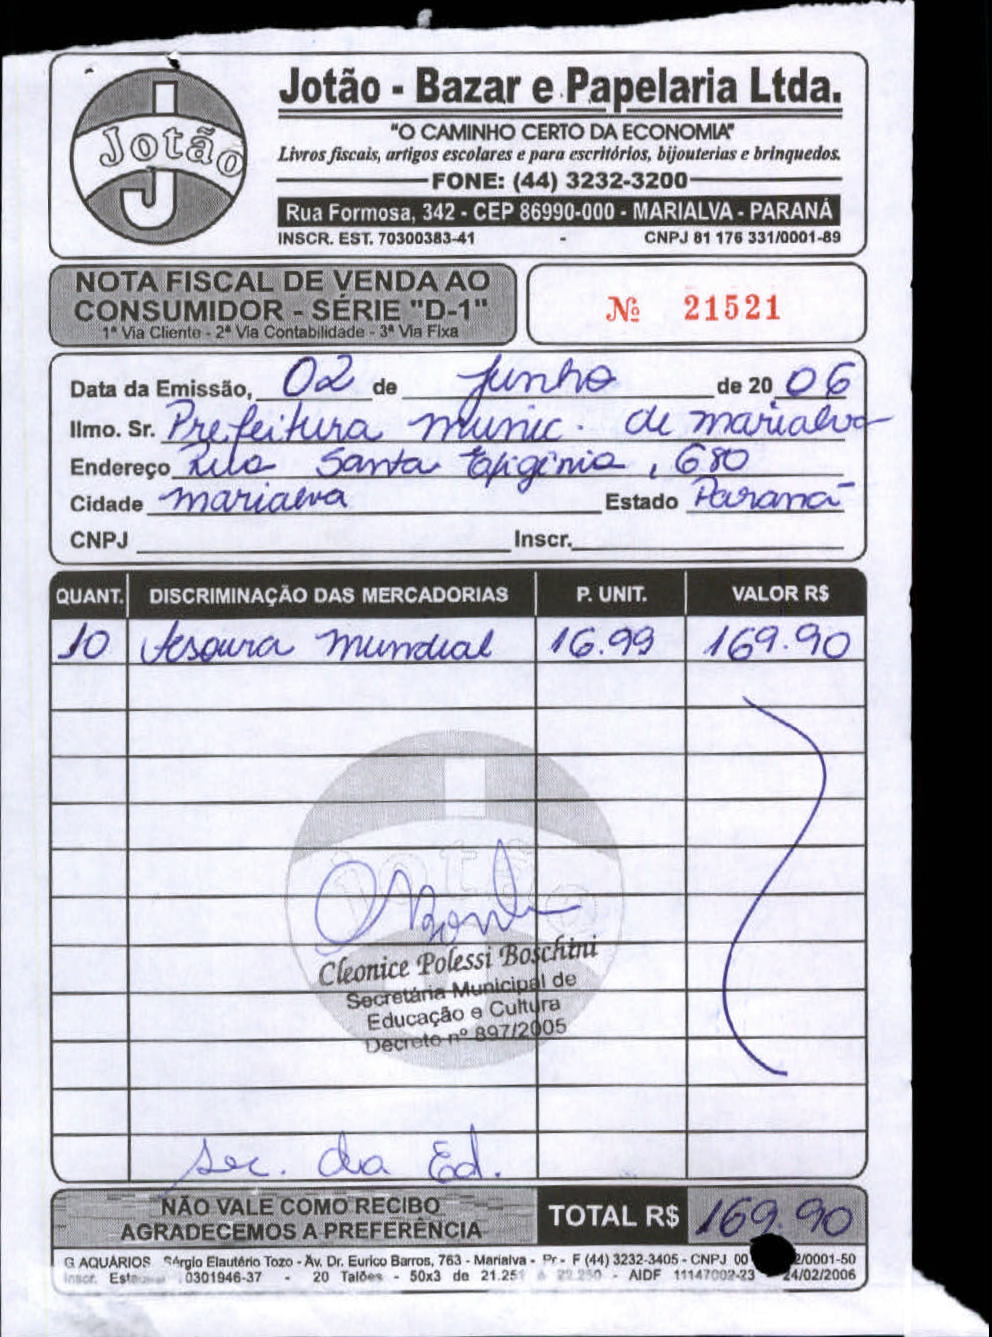 Jotão
Jotão - Bazar e Papelaria Ltda.
"O CAMINHO CERTO DA ECONOMIA"
Livros fiscais, artigos escolares e para escritórios, bijouterias e brinquedos.
FONE: (44) 3232-3200
Rua Formosa, 342 - CEP 86990-000 - MARIALVA - PARANÁ
INSCR. EST. 70300383-41 - CNPJ 81 176 331/0001-89
NOTA FISCAL DE VENDA AO
CONSUMIDOR - SÉRIE "D-1"
1ª Via Cliente - 2ª Via Contabilidade - 3ª Via Fixa
Nº 21521
Data da Emissão, 02 de Junho de 20 06
Ilmo. Sr. Prefeitura Munic. de Marialva
Endereço Rua Santa Efigênia, 680
Cidade Marialva Estado Paraná
CNPJ Inscr.
QUANT. DISCRIMINAÇÃO DAS MERCADORIAS P. UNIT. VALOR R$
10 Tesoura Mundial 16.99 169.90
Jotão
Cleonice Polessi Boschini
Secretária Municipal de
Educação e Cultura
Decreto nº 897/2005
Sec. da Ed.
NÃO VALE COMO RECIBO
AGRADECEMOS A PREFERÊNCIA
TOTAL R$ 169.90
G AQUÁRIOS Sérgio Elautério Tozo - Av. Dr. Eurico Barros, 763 - Marialva - Pr - F (44) 3232-3405 - CNPJ 00 2/0001-50
Inscr. 0301946-37 - 20 Talões - 50x3 de 21.251 a 22.250 - AIDF 11147002-23 24/02/2006